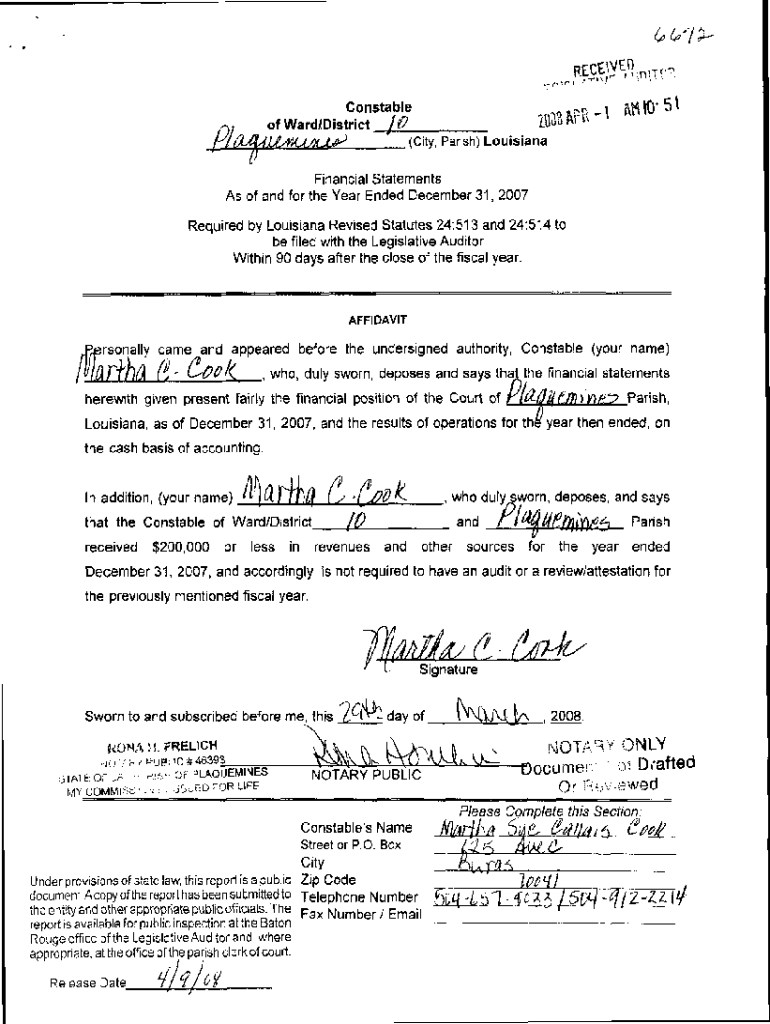 6692
RECEIVED
2008 APR -1 AM 10:51
Constable
of Ward/District 10
Plaquemines (City, Parish) Louisiana
Financial Statements
As of and for the Year Ended December 31, 2007
Required by Louisiana Revised Statutes 24:513 and 24:514 to
be filed with the Legislative Auditor
Within 90 days after the close of the fiscal year.
AFFIDAVIT
Personally came and appeared before the undersigned authority, Constable (your name)
Martha C. Cook, who, duly sworn, deposes and says that the financial statements
herewith given present fairly the financial position of the Court of Plaquemines Parish,
Louisiana, as of December 31, 2007, and the results of operations for the year then ended, on
the cash basis of accounting.
In addition, (your name) Martha C. Cook, who duly sworn, deposes, and says
that the Constable of Ward/District 10 and Plaquemines Parish
received $200,000 or less in revenues and other sources for the year ended
December 31, 2007, and accordingly is not required to have an audit or a review/attestation for
the previously mentioned fiscal year.
Martha C. Cook
Signature
Sworn to and subscribed before me, this 29th day of March, 2008.
RONA M. FRELICH
NOTARY PUBLIC # 46393
STATE OF LA. PARISH OF PLAQUEMINES
MY COMMISSION ISSUED FOR LIFE
NOTARY PUBLIC
NOTARY ONLY
Document not Drafted
Or Reviewed
Please Complete this Section:
Constable's Name Martha Sye Callais Cook
Street or P.O. Box 125 Ave C
City Buras
Zip Code 70041
Telephone Number 504-657-9033 / 504-912-2214
Fax Number / Email
Under provisions of state law, this report is a public
document. A copy of the report has been submitted to
the entity and other appropriate public officials. The
report is available for public inspection at the Baton
Rouge office of the Legislative Auditor and, where
appropriate, at the office of the parish clerk of court.
Release Date 4/9/08